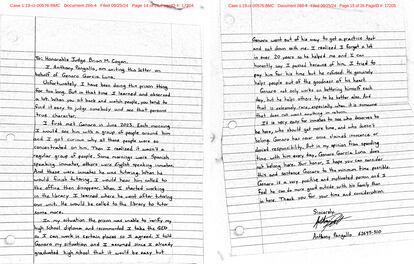 Case 1:19-cr-00576-BMC Document 268-4 Filed 09/25/24 Page 14 of 26 PageID #: 17204
To: Honorable Judge Brian M. Cogan,
I, Anthony Pangallo, am writing this letter on
behalf of Genaro Garcia Luna.
Unfortunately, I have been doing this prison thing
for too long. But in that time I learned and observed
a lot. When you sit back and watch people, you tend to
find it easy to judge somebody and see that persons
true character.
I first met Genaro in June 2023. Each morning
I would see him with a group of people around him
and I got curious why all these people were so
concentrated on him. Then I realized it wasn't a
regular group of people. Some mornings were Spanish
speaking inmates, others were English speaking inmates.
And these were inmates he was tutoring. When he
would finish tutoring, I would hear him called to
the office then disappear. When I started working
in the library I learned where he went after tutoring
our unit. He would be called to the library to tutor
some more.
In my situation the prison was unable to verify my
high school diploma and recommended I take the GED
so I can work in certain places so I agreed. I told
Genaro my situation and I assured since I already
graduated high school that it would be easy but
Case 1:19-cr-00576-BMC Document 268-4 Filed 09/25/24 Page 15 of 26 PageID #: 17205
Genaro went out of his way to get a practice test
and sat down with me. I realized I forgot a lot
in over 20 years so he helped me and I can
honestly say I passed because of him. I tried to
pay him for his time but he refused. He genuinely
helps people out of the goodness of his heart.
Genaro not only works on bettering himself each
day, but he helps others try to be better also. And
that is extremely rare, especially when it is someone
that does not want anything in return.
It is very easy for inmates to see who deserves to
be here, who should get more time, and who doesn't
belong. Genaro has never once claimed innocence or
denied responsibility. But in my opinion from spending
time with him every day, Genaro Garcia Luna does
not belong here. Your honor, I hope you can consider
this and sentence Genaro to the minimum time possible.
Genaro is a very positive and motivated person and I
feel he can do more good outside with his family than
in here. Thank you for your time and consideration.
Sincerely,
Anthony Pangallo